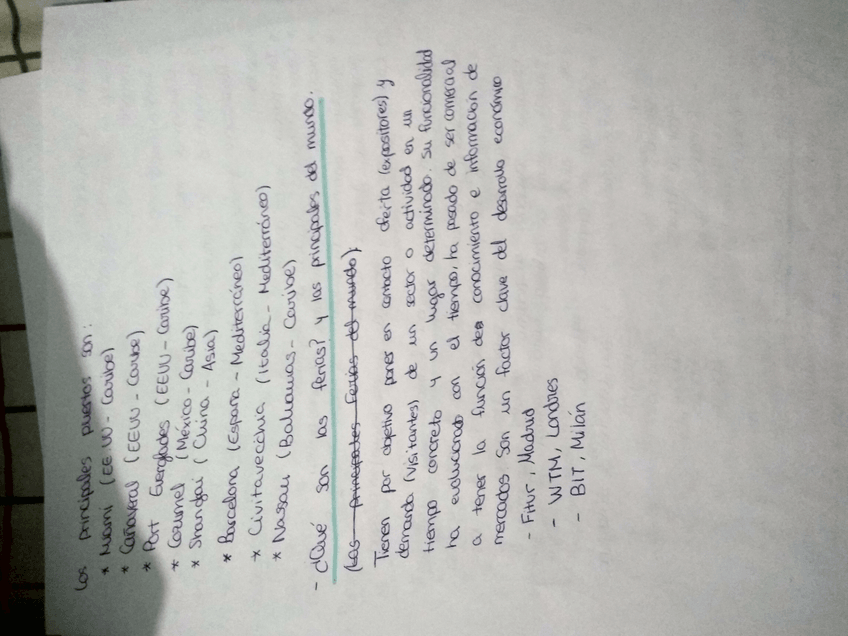 Los principales puertos son:
* Miami (EE UU - Caribe)
* Cañaveral (EEUU - Caribe)
* Port Everglades (EEUU - Caribe)
* Cozumel (México - Caribe)
* Shangai (China - Asia)
* Barcelona (España - Mediterráneo)
* Civitavecchia (Italia - Mediterráneo)
* Nassau (Bahamas - Caribe)
- ¿Qué son las ferias? y las principales del mundo.
(Las principales Ferias del mundo):
Tienen por objetivo poner en contacto oferta (expositores) y
demanda (visitantes) de un sector o actividad en un
tiempo concreto y un lugar determinado. Su funcionalidad
ha evolucionado con el tiempo, ha pasado de ser comercial
a tener la función de conocimiento e información de
mercados son un factor clave del desarrollo económico
- Fitur, Madrid
- WTM, Londres
- BIT, Milán